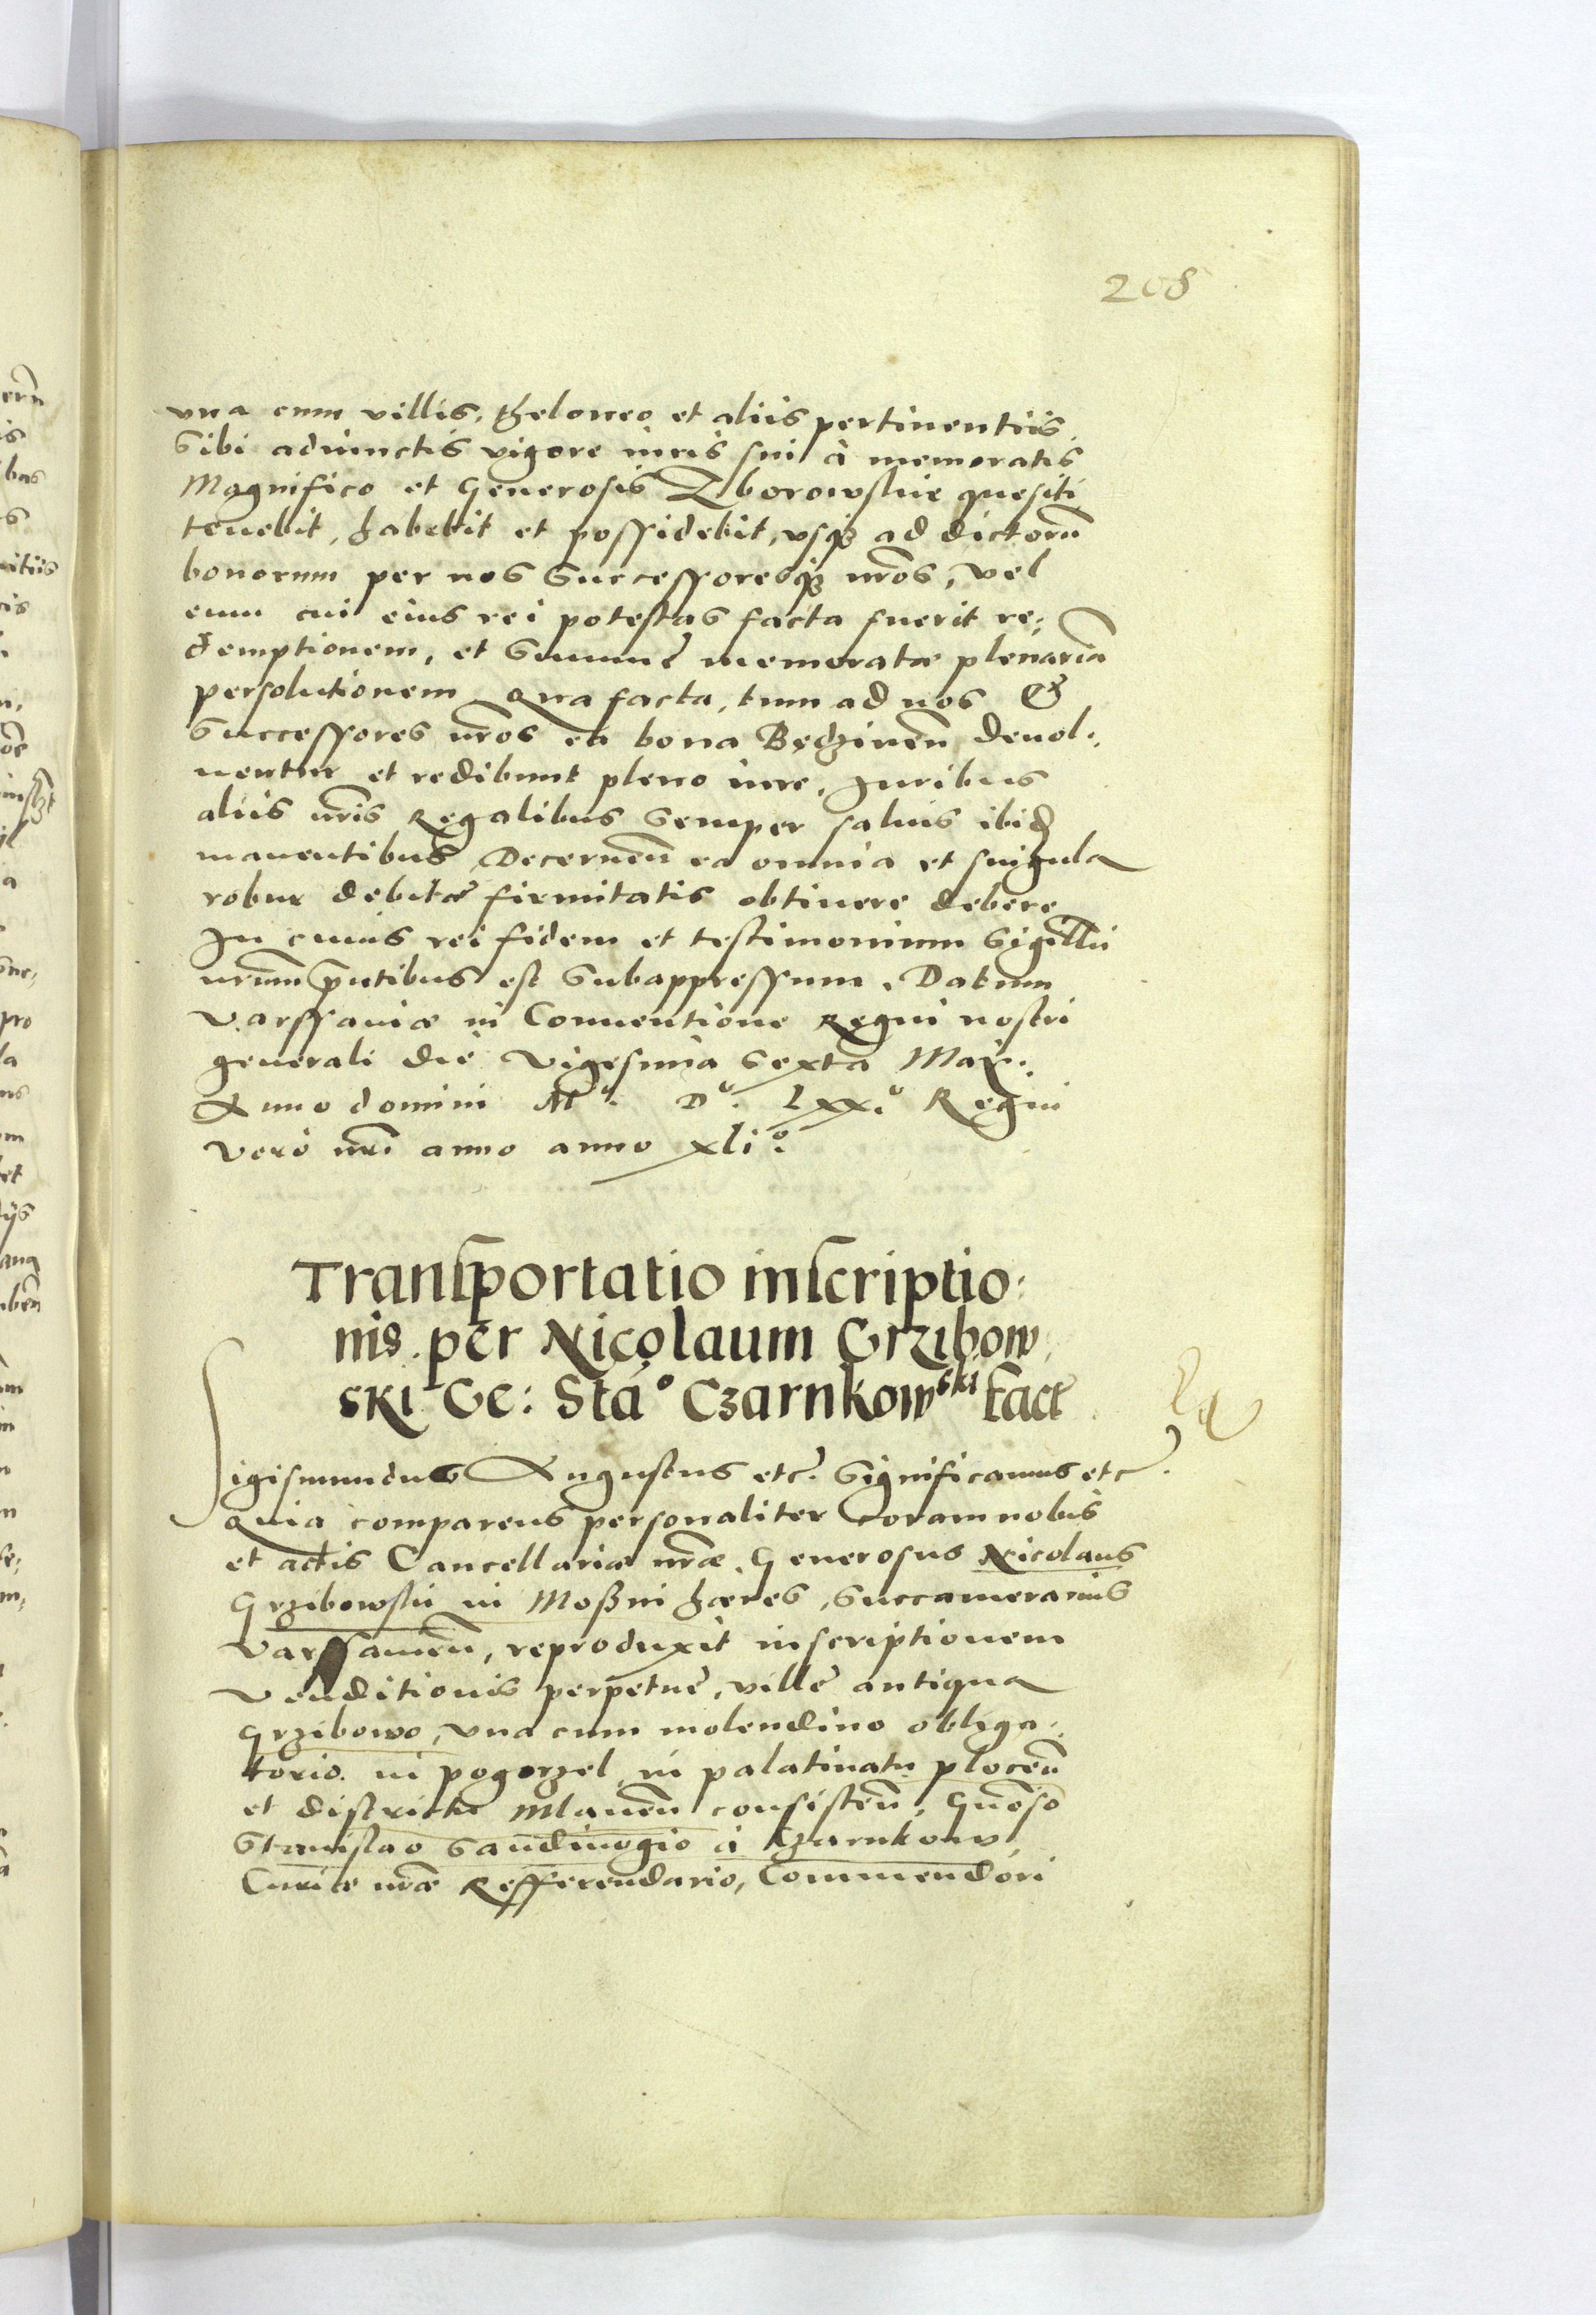 208
vna cum villis, theloneo et aliis pertinentiis
sibi adiunctis vigore iuris sui à memoratis
Magnifico et Generosis Zborowskie quesiti
tenebit, habebit et possidebit, vsq3 ad dictorũ
bonorum per nos Successoresq3 nr̃os, vel
eum cui eius rei potestas facta fuerit re:
demptionem, et Summę memoratæ plenariã
persolutionem Qua facta, tum ad nos &
Successores nr̃os ea bona Będzinen̄ deuol:
uentur et redibunt pleno iure, Juribus
aliis nr̃is Regalibus semper saluis ibid
manentibus, Decernen̄ ea omnia et singula
robur debitæ firmitatis obtinere debere
In cuius rei fidem et testimonium Sigillũ
nr̃um p̃ntibus est Subappressum. Datum
Varssauiæ in Conuentione Regni nostri
generali die Vigesima Sexta Maÿ.
Anno domini Mº. Dº. Lxx.º Regni
vero nr̃i anno anno xliº.
Transportatio inscriptio:
nis per Nicolaum Grzibow
ski Ge: Staº Czarnkowski factę
Sigismundus Augustus etc. Significamus etc.
Quia comparens personaliter Coram nobis
et actis Cancellariæ nr̃æ, Generosus Nicolaus
Grzibowski in Moßni hæres, Succamerarius
Varssauien̄, reproduxit inscriptionem
Venditionis perpetuę, villę antiqua
Grzibowo, vna cum molendino obliga:
torio in pogorzel in palatinatu plocen̄
et districtu Mlauen̄ consisten̄, Gn̄oso
Stanislao Sandiuogio à Czarnkow,
Curiæ nr̃æ Refferendario, Commendori